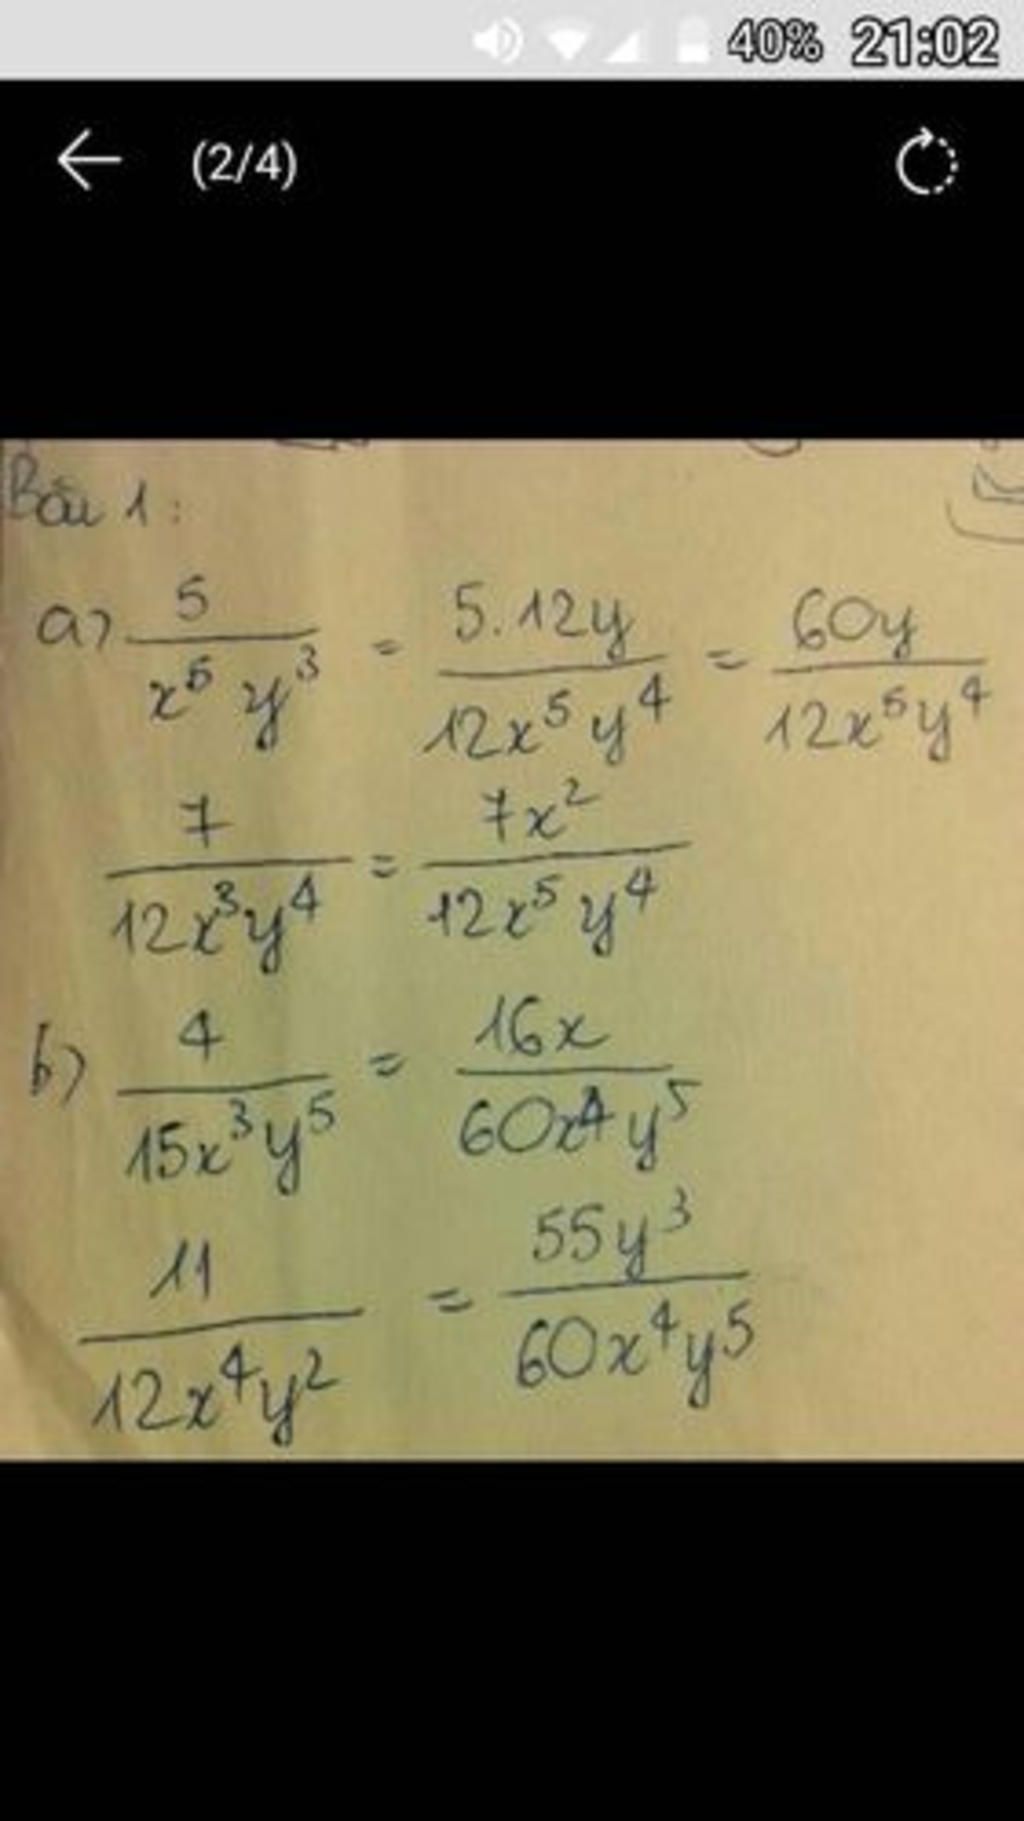 40% 21:02
(2/4)
Bài 1:
a) 5/(x⁵y³) = 5.12y/(12x⁵y⁴) = 60y/(12x⁵y⁴)
7/(12x³y⁴) = 7x²/(12x⁵y⁴)
b) 4/(15x³y⁵) = 16x/(60x⁴y⁵)
11/(12x⁴y²) = 55y³/(60x⁴y⁵)